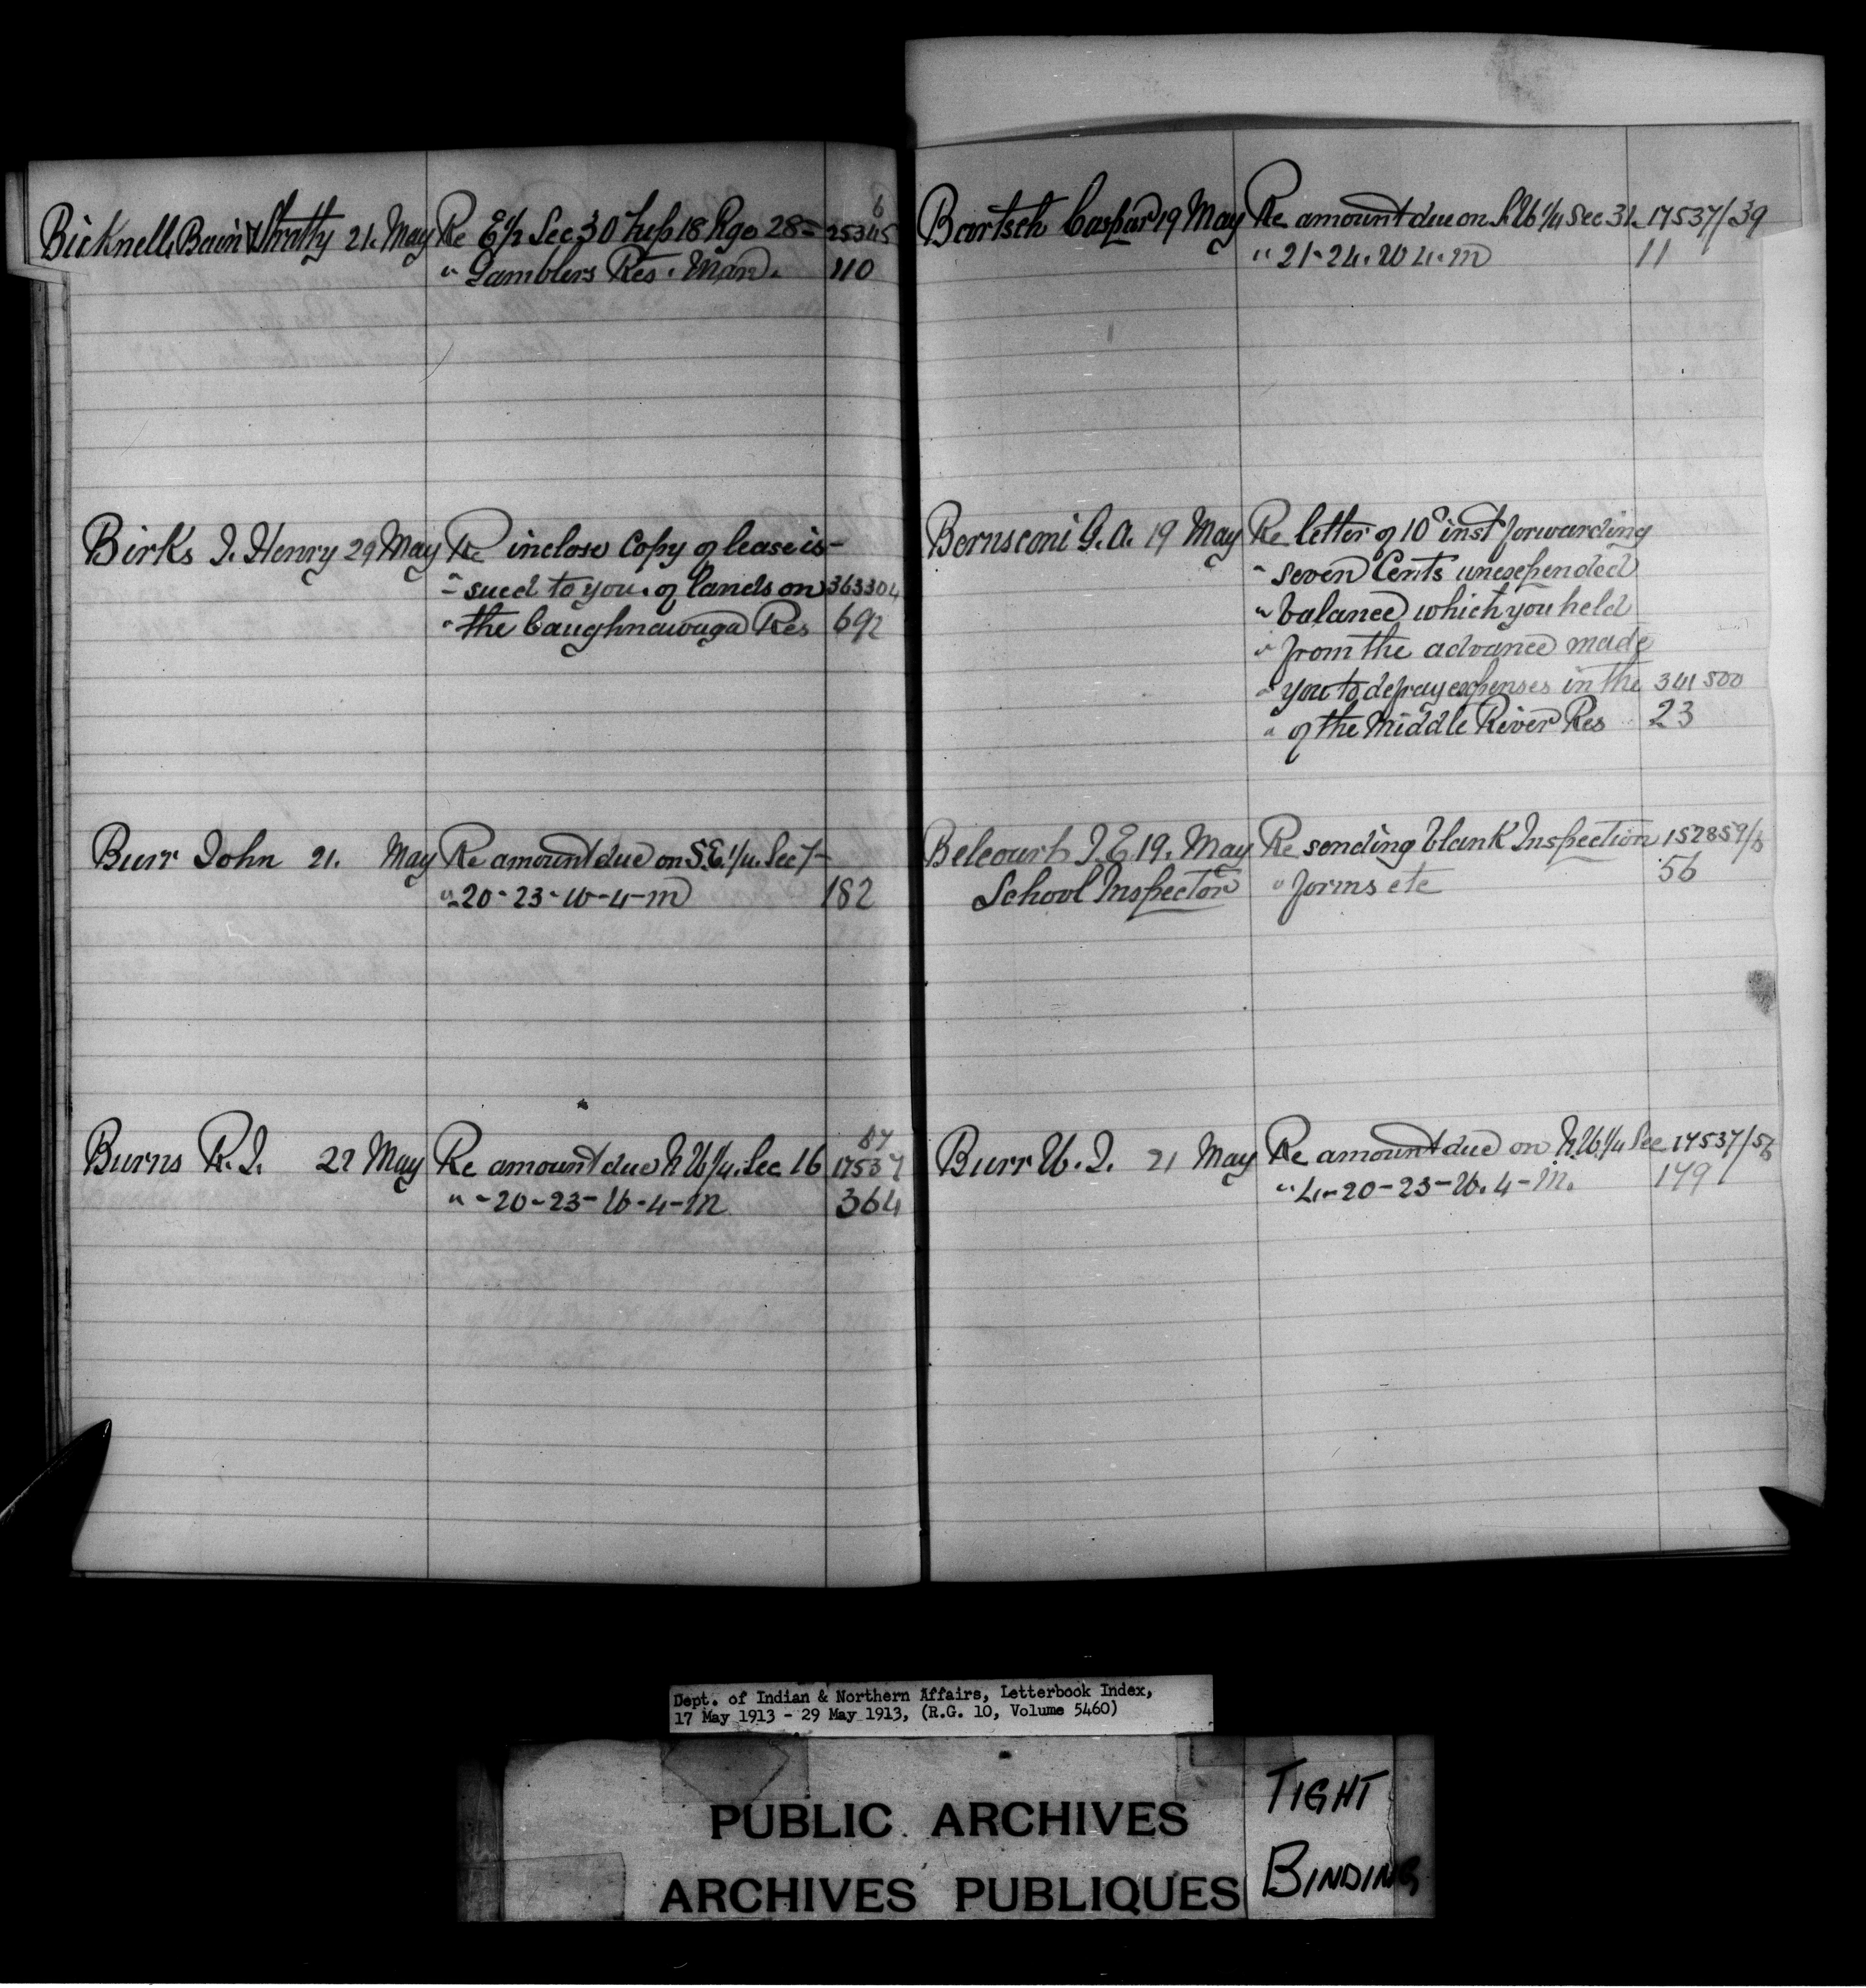 Bicknell, Bain & Strathy 21. May Re E½ Sec 30 Tup 18 Rge 28 = 25345 6
" Gamblers Res. Man. 110
Birks J. Henry 29 May Re inclose Copy of lease is-
- sued to you. of lands on 363304
" the Caughnawaga Res 692
Burr John 21. May Re amount due on S.E. 1/4. Sec 7-
" 20-23-W-4-M 182
Burns R.J. 22 May Re amount due N W 1/4. Sec 16 17537 57
" -20-23-W-4-M 364
Bartsch Caspar 19 May Re amount due on N W 1/4 Sec 31. 17537/39
" 21-24. W 4. M 11
Bernsconi G.A. 19 May Re letter of 10th inst forwarding
" seven Cents unexpended
" balance which you held
" from the advance made
" you to defray expenses in the 341500
" of the Middle River Res 23
Belcourt J.E. 19. May Re sending blank Inspection 152859/6
School Inspector " forms etc 56
Burr W. J. 21 May Re amount due on N.W. 1/4 Sec 17537/56
" 4-20-23-W. 4-M. 179
Dept. of Indian & Northern Affairs, Letterbook Index,
17 May 1913 - 29 May 1913, (R.G. 10, Volume 5460)
PUBLIC ARCHIVES
ARCHIVES PUBLIQUES
TIGHT
BINDING